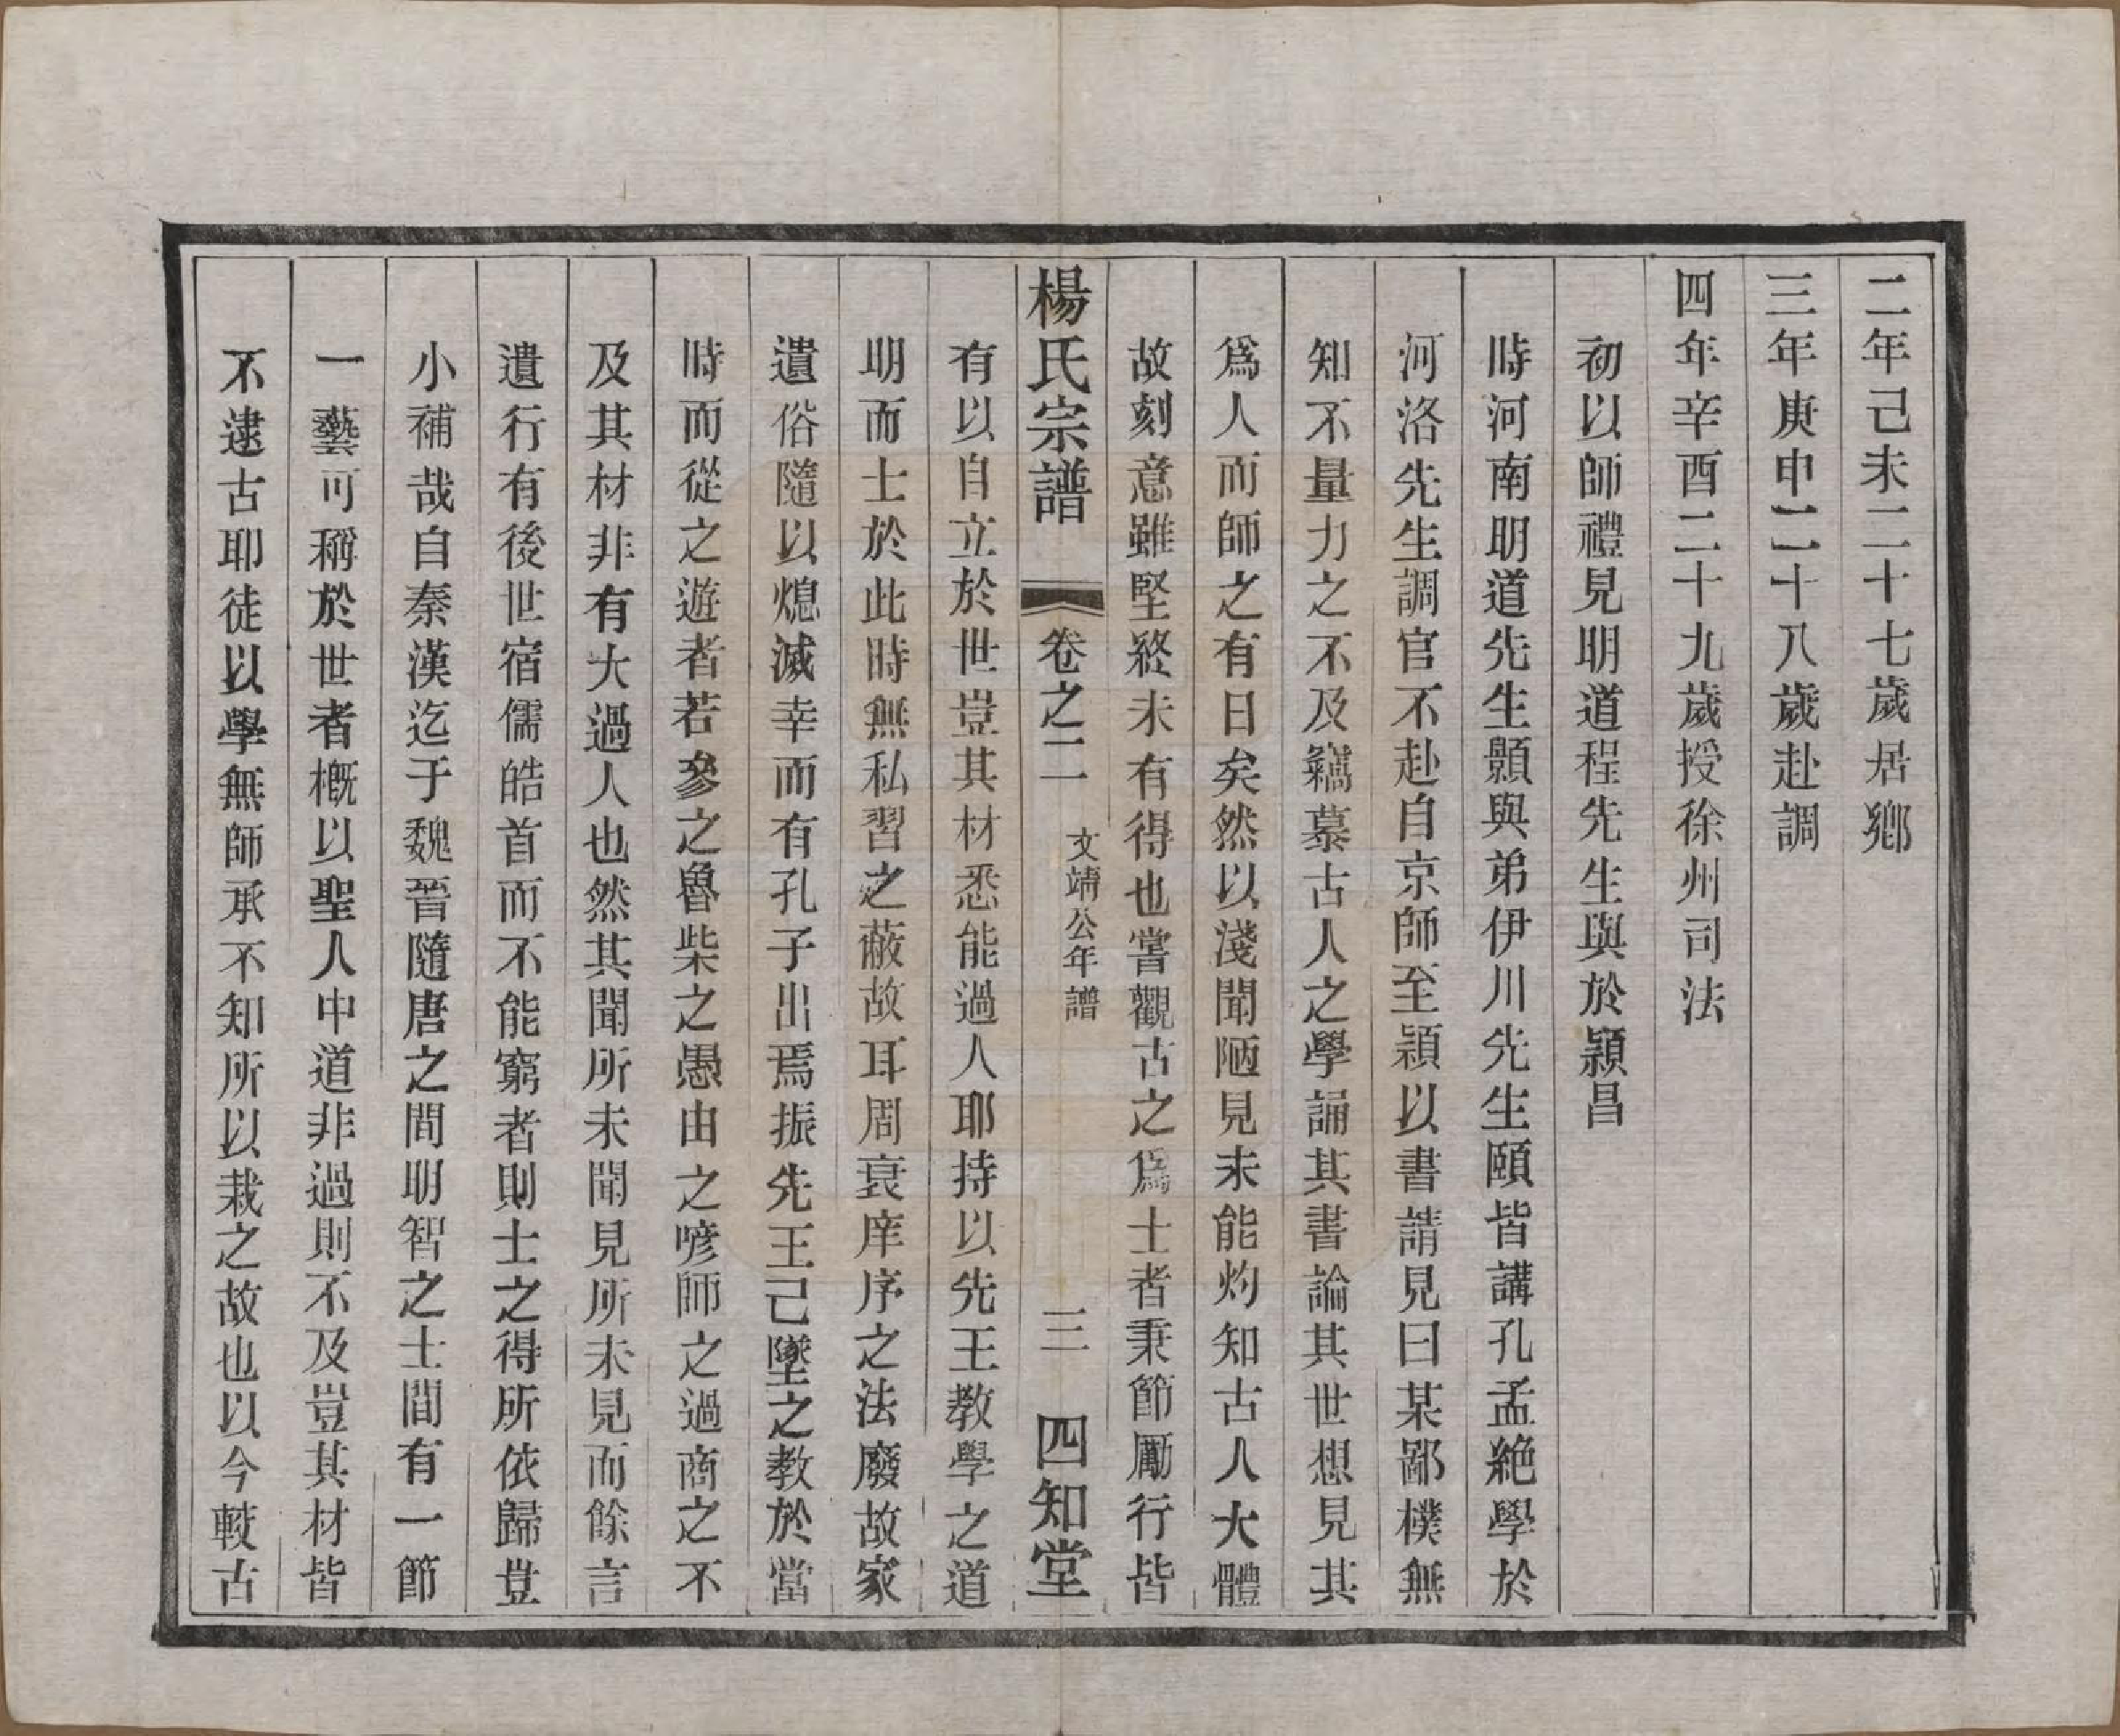 二年己未二十七歲居鄉
三年庚申二十八歲赴調
四年辛酉二十九歲授徐州司法
初以師禮見明道程先生與於潁昌
時河南明道先生顥與弟伊川先生頤皆講孔孟絶學於
河洛先生調官不赴自京師至潁以書請見曰某鄙樸無
知不量力之不及竊慕古人之學誦其書論其世想見其
爲人而師之有日矣然以淺聞陋見未能灼知古人大體
故刻意雖堅終未有得也嘗觀古之爲士者秉節勵行皆
楊氏宗譜 卷之二 文靖公年譜 三 四知堂
有以自立於世豈其材悉能過人耶持以先王教學之道
明而士於此時無私習之蔽故耳周衰庠序之法廢故家
遺俗隨以熄滅幸而有孔子出焉振先王己墜之教於當
時而從之遊者若參之魯柴之愚由之喭師之過商之不
及其材非有大過人也然其聞所未聞見所未見而餘言
遺行有後世宿儒皓首而不能窮者則士之得所依歸豈
小補哉自秦漢迄于魏晉隨唐之間明智之士間有一節
一藝可稱於世者概以聖人中道非過則不及豈其材皆
不逮古耶徒以學無師承不知所以栽之故也以今較古